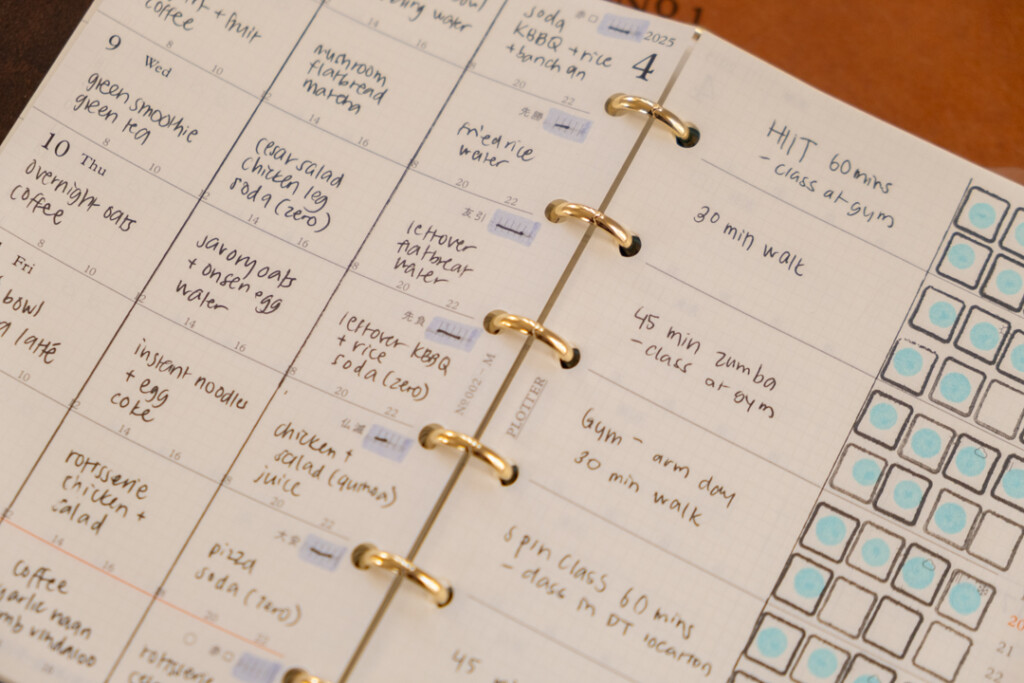 No 1
+ fruit
coffee
8
10
14
16
water
soda
KBBQ + rice
+ banchan
赤口
2025
4
20
22
9
Wed
green smoothie
green tea
8
10
mushroom
flatbread
matcha
14
16
fried rice
water
先勝
20
22
10
Thu
overnight oats
coffee
8
10
cesar salad
chicken leg
soda (zero)
14
16
leftover
flatbreat
water
友引
20
22
Fri
bowl
latté
10
savory oats
+ onsen egg
water
14
16
leftover KBBQ
+ rice
soda (zero)
先負
20
22
instant noodles
+ egg
coke
14
16
chicken +
salad (quinoa)
juice
仏滅
20
22
rottsserie
chicken +
salad
14
16
pizza
soda (zero)
大安
20
22
coffee
garlic naan
lamb vindaloo
rottsserie
赤口
No 002 - M
PLOTTER
HIIT 60 mins
- class at gym
30 min walk
45 min zumba
- class at gym
Gym - arm day
30 min walk
spin class 60 mins
- class in DT location
45
20
21
22